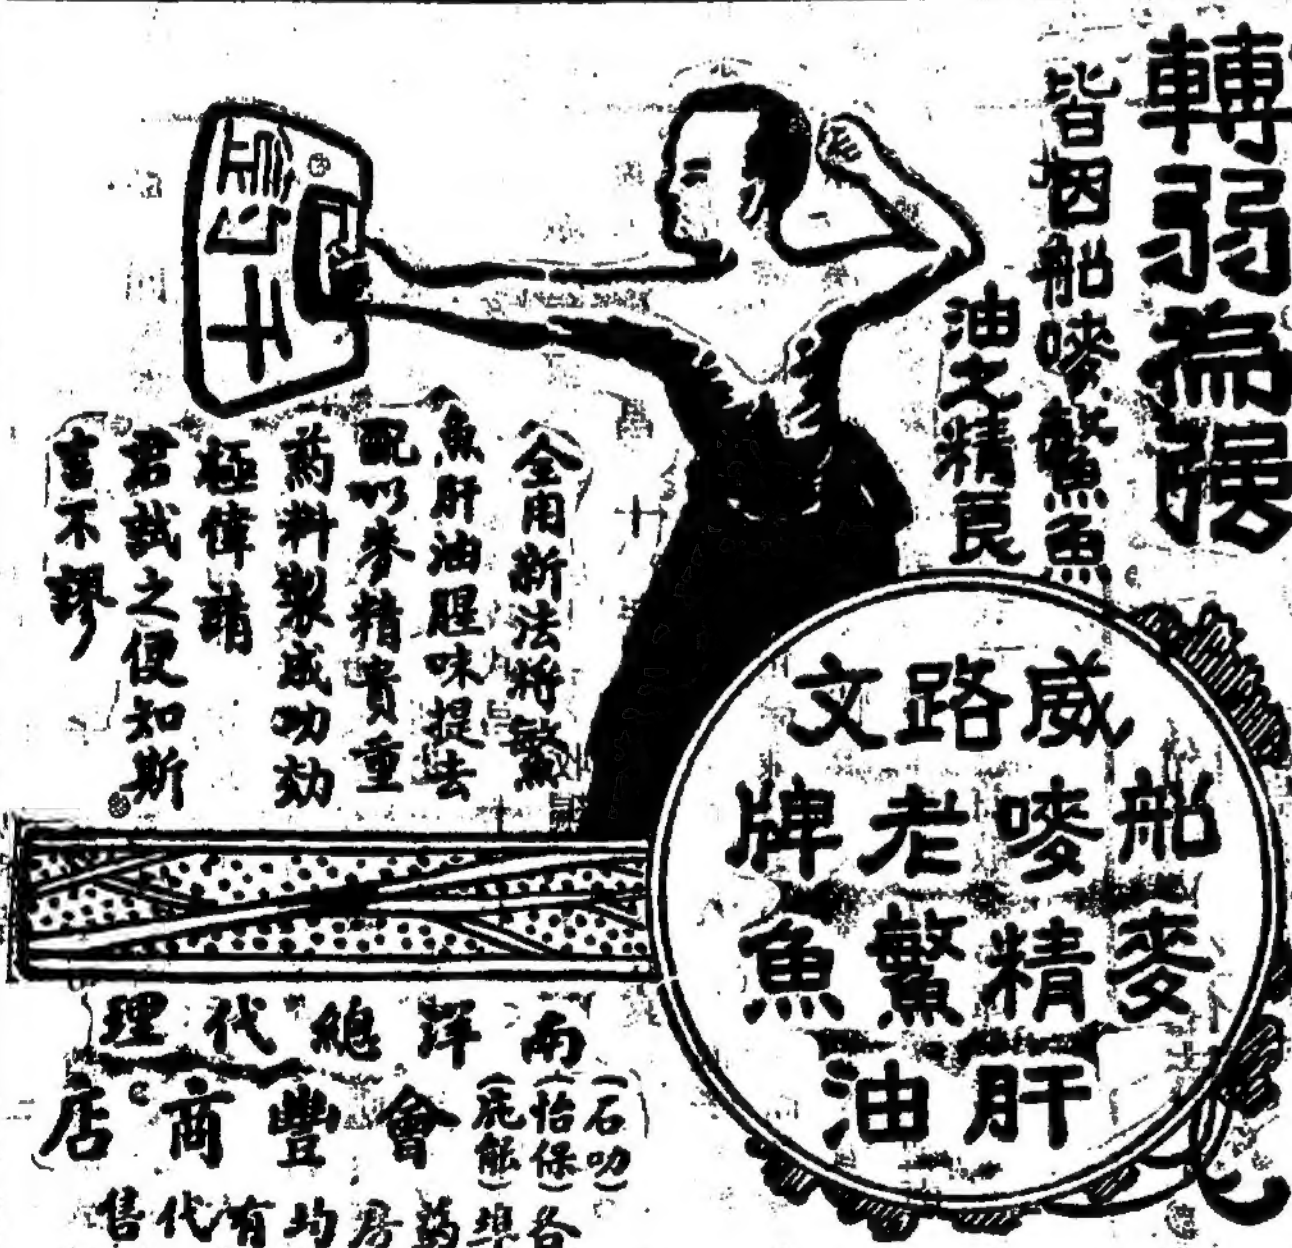 轉弱為強
皆因船嘜鰵魚
油之精良
全用新法將鰵
魚肝油腥味提去
配以麥精貴重
葯料製成功効
極偉請
君試之便知斯
言不謬
威路文
船嘜老牌
麥精鰵魚
肝油
南洋總代理
(石叻)
(怡保)
(庇能)
會豐商店
各埠葯房均有代售